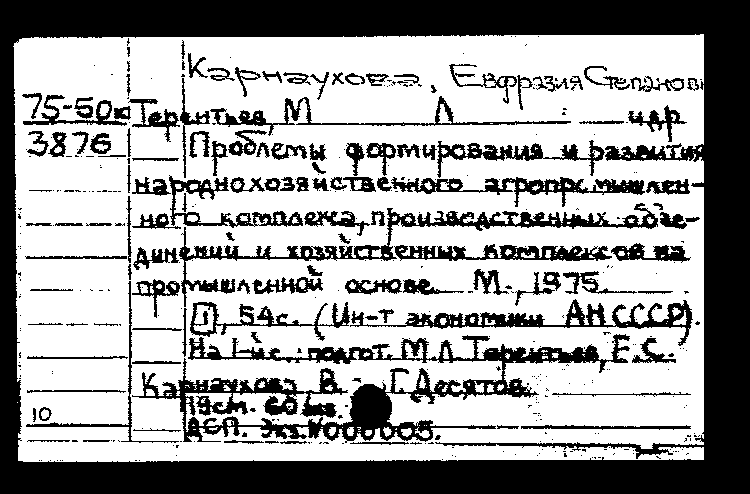 Карнаухова, Евфразия Степанов
75-50к Терентьев, М Л и др
3876 Проблемы формирования и развития
народнохозяйственного агропромышлен-
ного комплекса, производственных объе-
динений и хозяйственных комплексов на
промышленной основе. М., 1975.
[1], 54с. (Ин-т экономики АН СССР).
На 1-й с.: подгот. М.Л Терентьев, Е.С.
Карнаухова, В. Г. Десятов.
119см. 60 экз.
10 ДЕП. Экз.N000005.